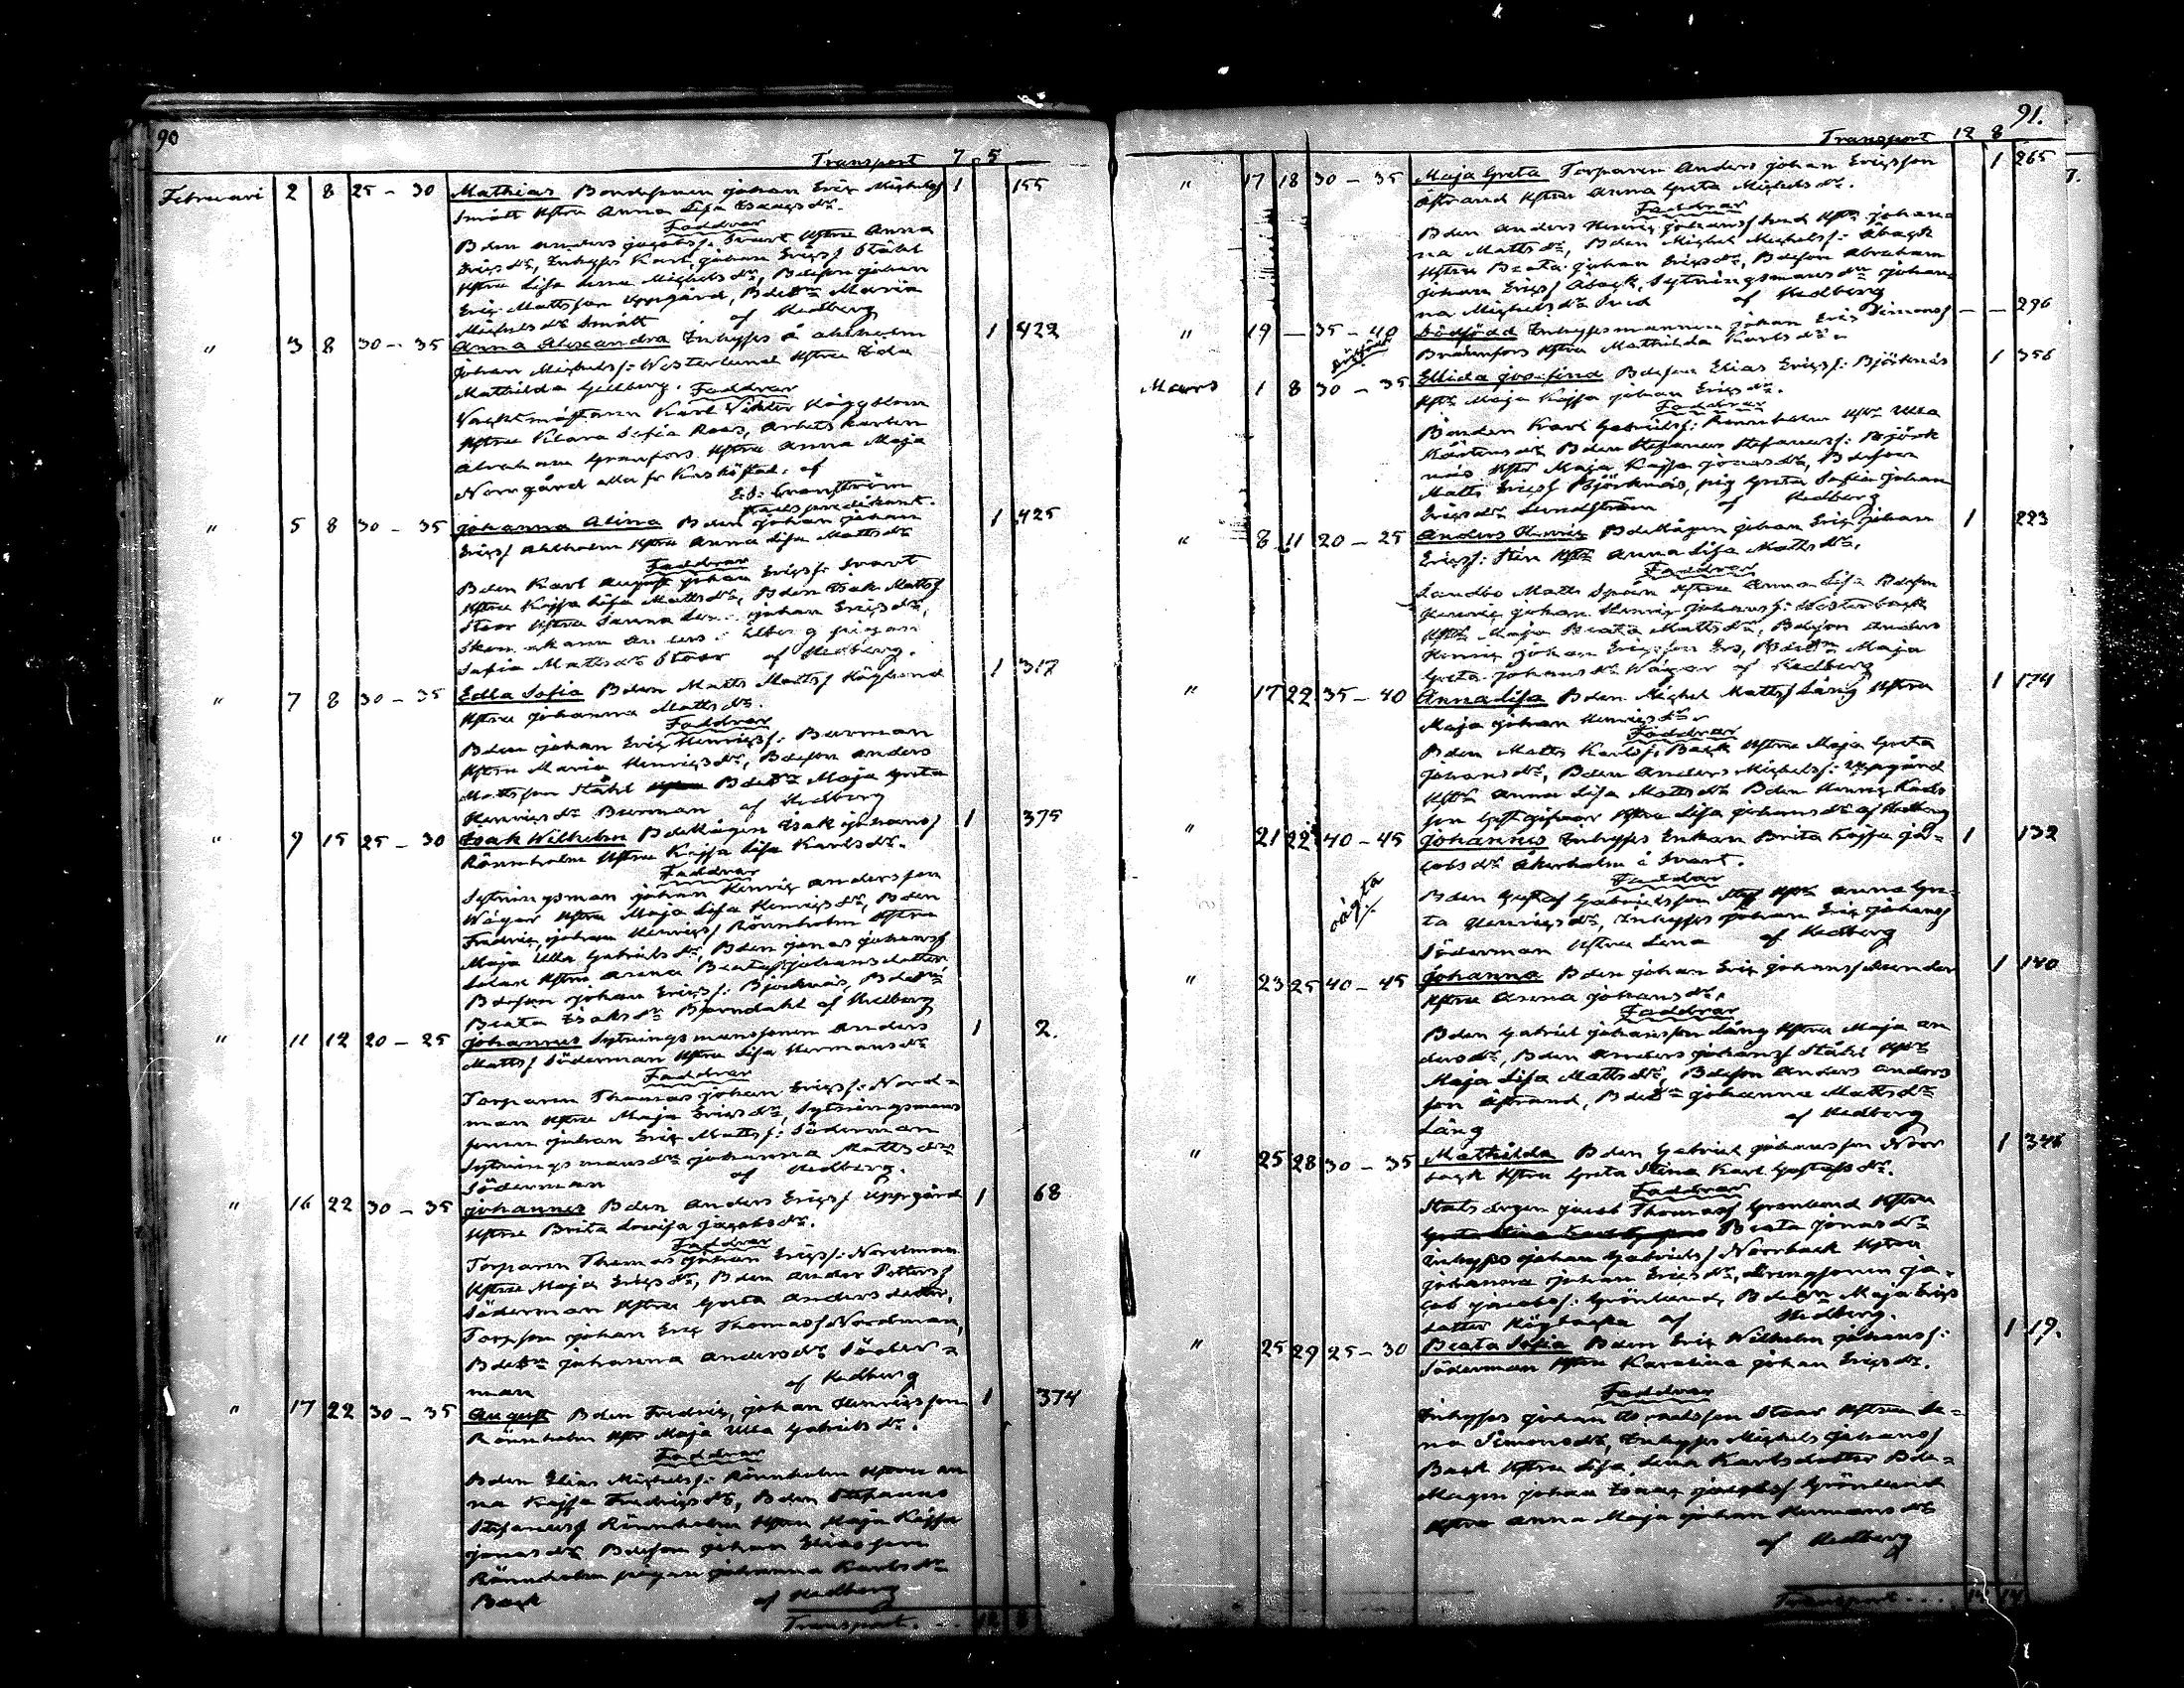 90
Transport 7 5
Februari 2 8 25 - 30 Mathias Bondesonen Johan Eric Michelss 1 155
Smått Hstru Anna Lisa Isaacsdr.
Faddrar
Bden Anders Jacobss. Svart Hstru Anna
Ericsdr, Inhyses Karl Johan Ericss Ståhl
Hstru Lisa Michelsdr, Bdeson Johan
Eric Mattsson Uppgård, Bdedtr Maria
Michelsdr Smått af Hedberg
" 3 8 30 - 35 Anna Alexandra Inhyses å Ahlholm 1 422
Johan Michelss: Westerlund Hstru Ida
Mathilda Gullberg. Faddrar
Vaktmästaren Karl Viktor Häggblom
Hstru Klara Sofia Roos, Arbetskarlen
Abraham Granfors Hstru Anna Maja
Norrgård alla fr Kaskö stad. af
"
5 8 30 - 35 Johanna Alina Bden Johan Johan 1 425
Ericss Ahlholm Hstru Anna Lisa Mattsdr
Faddrar
Bden Karl August Johan Ericss: Svart
Hstru Kajsa Lisa Mattsdr, Bden Isak Mattss
Stoor Hstru Sanna Lena Johan Ericsdr,
Sofia Mattsdr Stoor af Hedberg.
" 7 8 30 - 35 Edla Sofia Bden Matts Mattss Höglund 1 317
Hstru Johanna Mattsdr.
Faddrar
Bden Johan Eric Henricss: Burman
Hstru Maria Henricsdr, Bdeson Anders
Mattsson Ståhl Bdedtr Maja Greta
Henricsdr Burman af Hedberg
" 9 15 25 - 30 Isak Wilhelm Bdemågen Isak Johanss 1 375
Rönnholm Hstru Kajsa Lisa Karlsdr.
Faddrar
Sytningsman Johan Henric Andersson
Wägar Hstru Maja Lisa Henricsdr, Bden
Fredric Johan Henricss Rönnholm Hstru
Maja Ulla Gabrielsdr, Bden Jonas Johanss
Hstru Anna Beata Johansdotter
Bdeson Johan Ericss: Björknäs, Bdedtr
Beata Isaksdr Björndahl af Hedberg
" 11 12 20 - 25 Johannes Sytningsmanssonen Anders 1 2.
Mattss Söderman Hstru Lisa Hermansdr
Faddrar
Torparen Thomas Johan Ericss: Nord-
man Hstru Maja Ericsdr, Sytningsmans
sonen Johan Eric Mattss: Söderman
Sytningsmansdtr Johanna Mattsdr
Söderman af Hedberg.
" 16 22 30 - 35 Johannes Bden Anders Ericss Uppgård 1 68
Hstru Brita Lovisa Jacobsdr.
Faddrar
Torparen Thomas Johan Ericss: Nordman
Hstru Maja Ericsdr, Bden Ander Petterss
Söderman Hstru Greta Andersdotter,
Torpson Johan Eric Thomass Nordman,
Bdedtr Johanna Andersdr Söder-
man af Hedberg
" 17 22 30 - 35 August Bden Fredric Johan Henricsson 1 374
Rönnholm Hstr Maja Ulla Gabrielsdr.
Faddrar
Bden Elias Michelss: Rönnholm Hstru An
na Kajsa Fredricsdr, Bden Stefanus
Stefanuss Rönnholm Hstru Maja Kajsa
Jonasdr Bdeson Johan Eliasson
Rönnholm pigan Johanna Karlsdr
Back af Hedberg
Transport. . . 12 8
91.
Transport 12 8
" 17 18 30 - 35 Maja Greta Torparen Anders Johan Ericsson 1 265
Åstrand Hstru Anna Greta Michelsdr.
Faddrar
Bden Anders Henric Johanss Sved Hstr Johan
na Mattsdr, Bden Michel Michelss: Åback
Hstru Beata Johan Ericsdr, Bdeson Abraham
Johan Ericss Åback, Sytningsmansdtr Johan-
na Michelsdr Sved af Hedberg
" 19 - 35 - 40 Dödfödd Inhysesmannen Johan Eric Simonss - - 296
Brännfors Hstru Mathilda Karlsdr.
Mars 1 8 30 - 35 Ellida Josefina Bdeson Elias Ericss: Björknäs 1 356
Hstr Maja Kajsa Johan Ericsdr.
Faddrar
Bonden Karl Gabrielss: Rönnholm Hstr Ulla
Mårtensdr Bden Stefanus Stefanuss: Björk
näs Hstr Maja Kajsa Jonasdr, Bdeson
Matts Ericss Björknäs, pig Greta Sofia Johan
Ericsdr Lundström af Hedberg
" 8 11 20 - 25 Anders Henric Bdemågen Johan Eric Johan 1 223
Ericss: Sten Hstr Anna Lisa Mattsdr.
Faddrar
Landbo Matts Spåre Hstru Anna Lisa Bdeson
Henric Johan Henric Johanss: Westerback
Hstr Maja Beata Mattsdr, Bdeson Anders
Henric Johan Ericsson Ers, Bdedtr Maja
Greta Johansdr Wägar af Hedberg
" 17 22 35 - 40 Anna Lisa Bden Michel Mattss Lång Hstru 1 174
Maja Johan Henricsdr.
Faddrar
Bden Matts Karlss: Back Hstru Maja Greta
Johansdr, Bden Anders Michelss: Uppgård
Hstr Anna Lisa Mattsdr Bden Henric Karls
son Gästgifvar Hstru Lisa Johansdr af Hedberg
" 21 22 40 - 45 Johannes Inhyses Enkan Brita Kajsa Ja- 1 132
cobsdr Åkerholm å Svart.
oägta
Faddrar
Bden Gustaf Gabrielsson Hstr Anna Gre-
ta Henricsdr, Inhyses Johan Eric Johanss
Söderman Hstru Lena af Hedberg
" 23 25 40 - 45 Johanna Bden Johan Eric Johanss Sunder 1 140
Hstru Anna Johansdr.
Faddrar
Bden Gabriel Johansson Lång Hstru Maja An
dersdr, Bden Anders Johanss Ståhl Hstr
Maja Lisa Mattsdr, Bdeson Anders Anders
son Åstrand, Bdedtr Johanna Mattsdr
Lång af Hedberg
" 25 28 30 - 35 Mathilda Bden Gabriel Johansson Norr 1 346
back Hstru Greta Stina Karl Gustafsdr.
Faddrar
Statsdrgen Jacob Thomass Grönlund Hstru
Beata Jonasdr
Inhyses Johan Gabrielss Norrback Hstru
Johanna Johan Ericsdr, drengsonen Ja-
cob Jacobss: Grönlund, Bdedtr Maja Erics
dotter Högbacka af Hedberg.
" 25 29 25 - 30 Beata Sofia Bden Eric Wilhelm Johanss: 1 19.
Söderman Hstru Karolina Johan Ericsdr.
Faddrar
Inhyses Johan Stoor Hstru Le-
na Simonsdr, Inhyses Michels Johanss
Back Hstru Lisa Lena Karlsdotter Bde-
mågen Johan Isaac Jacobss Grönlund
Hstru Anna Maja Johan Hermansdr
af Hedberg
Transport . . . 14 14